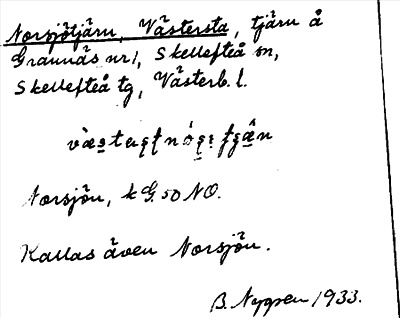 Norsjötjärn, Västersta, tjärn å
Grannäs nr 1, Skellefteå sn,
Skellefteå tg, Västerb. l.
Norsjön, k G. 50 NO.
Kallas även Norsjön.
B. Nygren 1933.